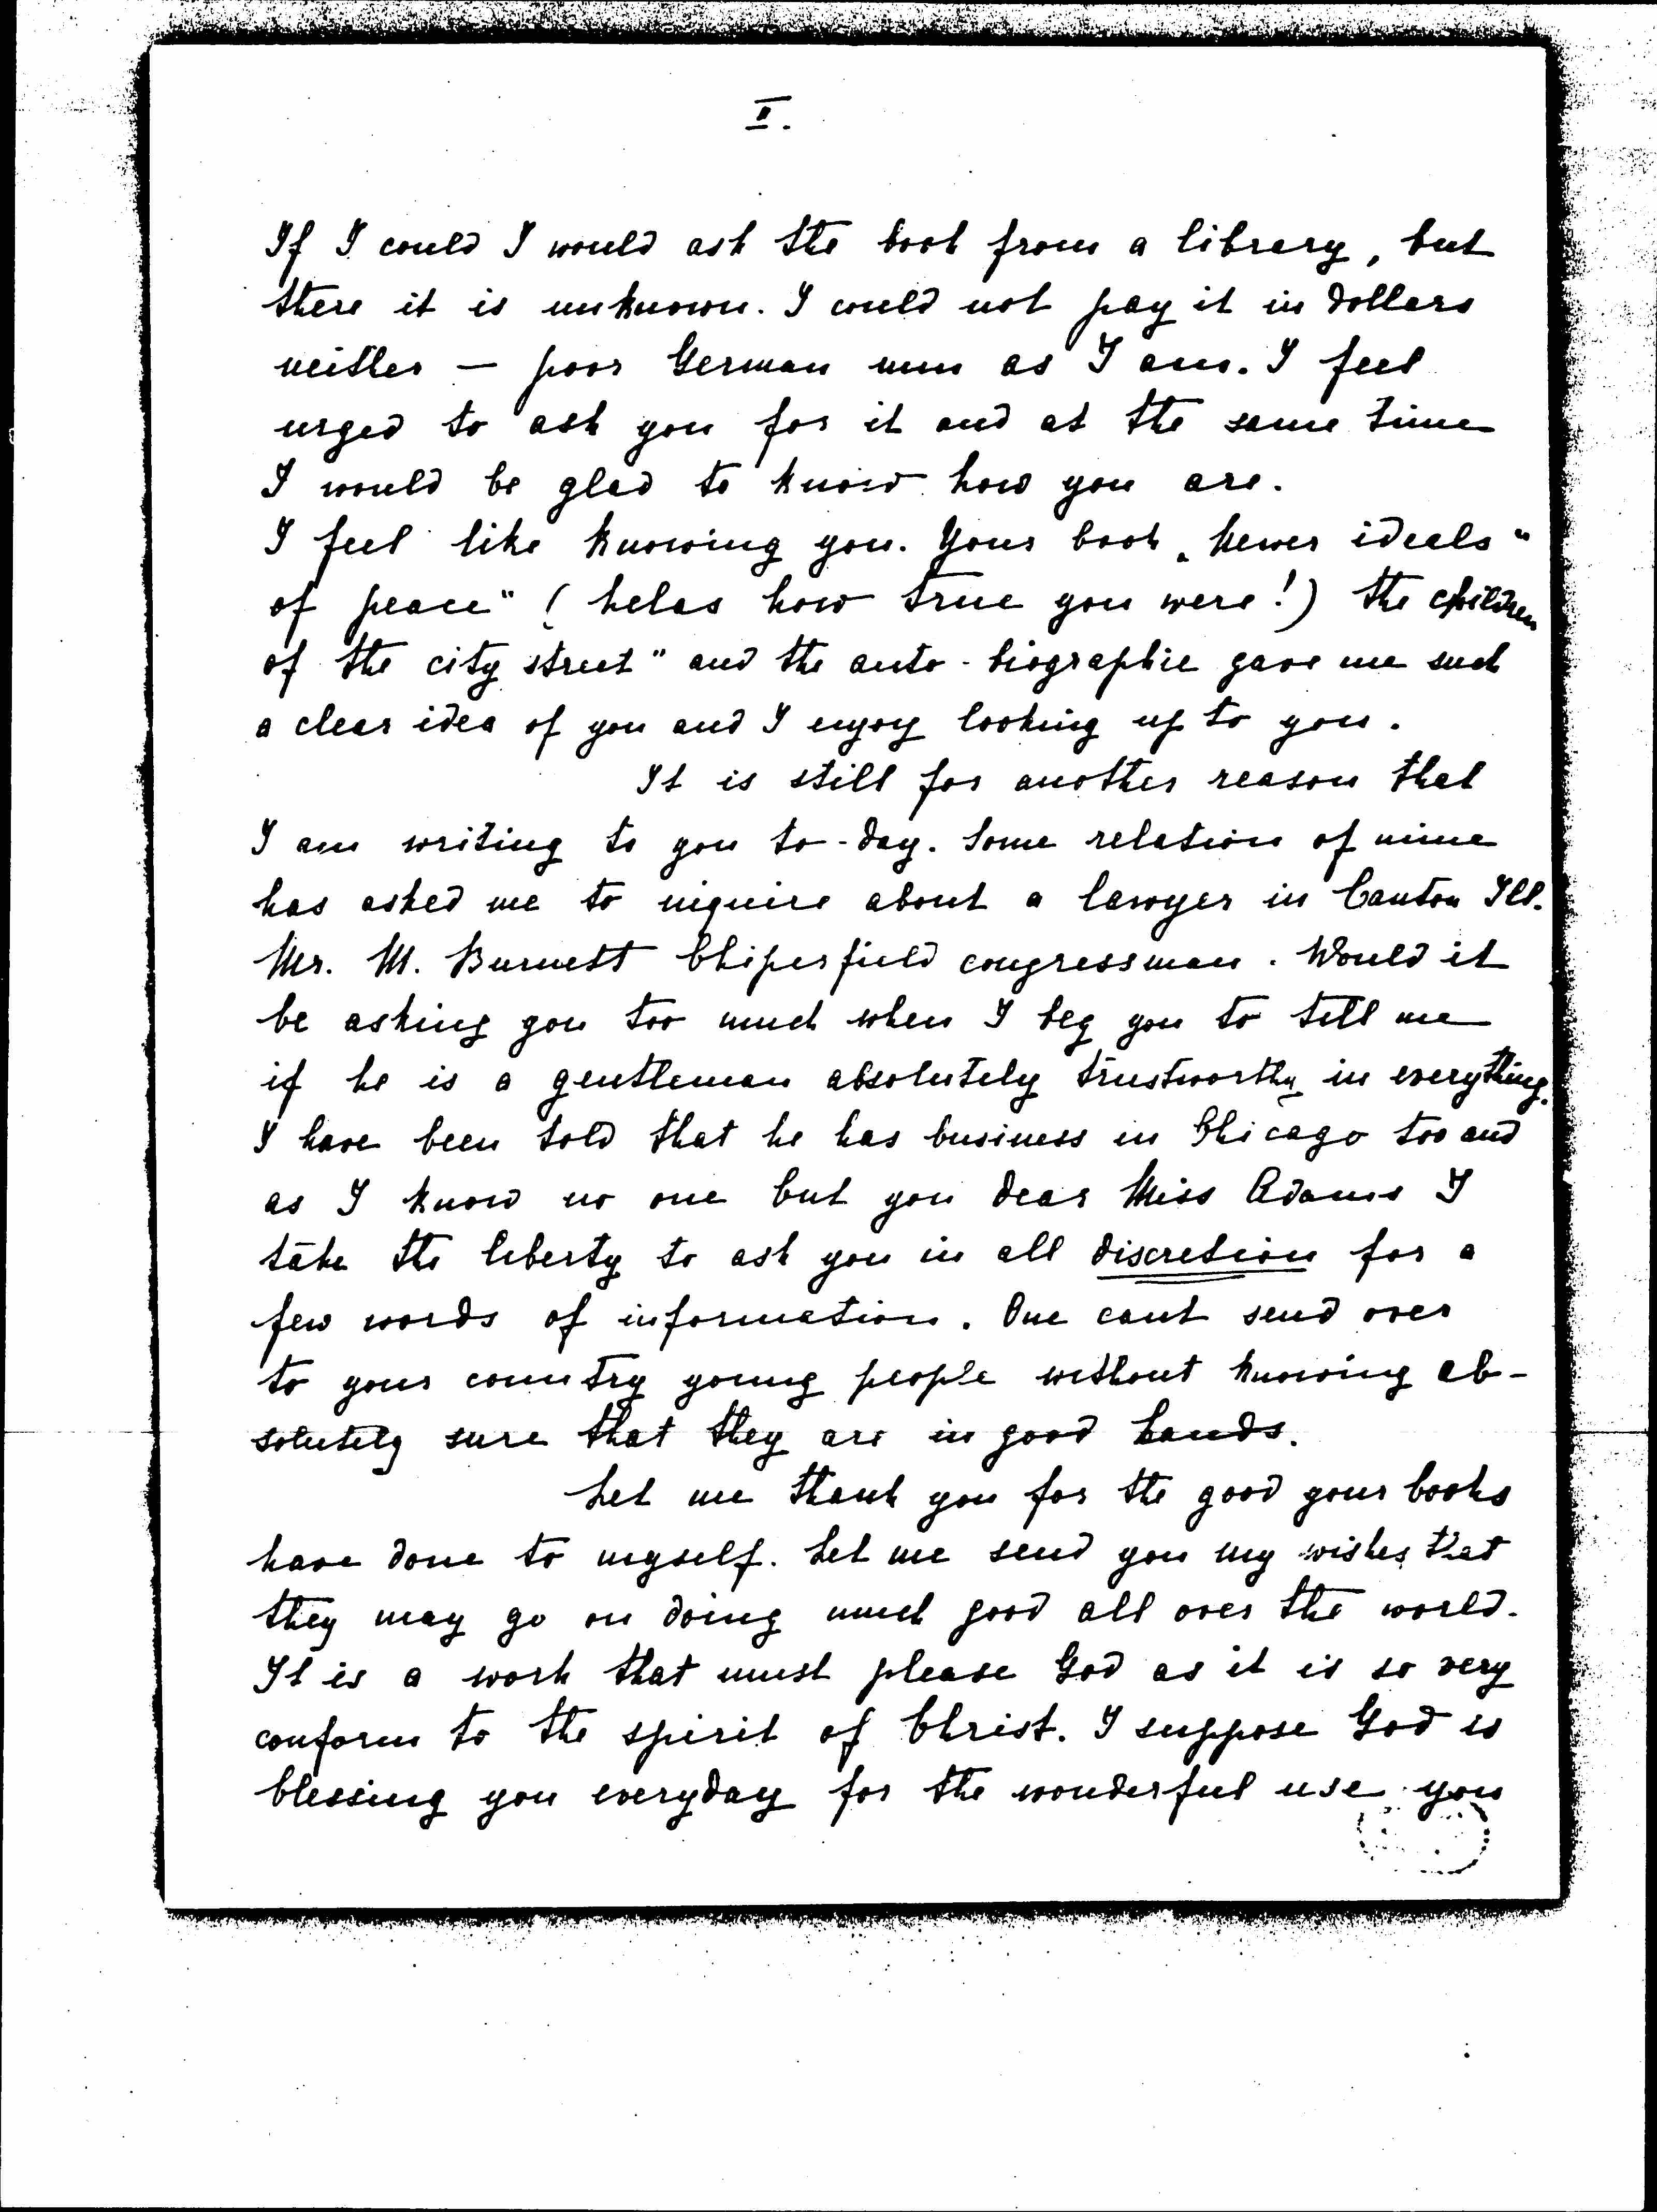 II.
If I could I would ask the book from a library, but
there it is unknown. I could not pay it in dollars
neither — poor German nun as I am. I feel
urged to ask you for it and at the same time
I would be glad to know how you are.
I feel like knowing you. Your book „Newer ideals"
of peace" (helas how true you were!) the children
of the city street" and the auto-biographie gave me such
a clear idea of you and I enjoy looking up to you.
It is still for another reason that
I am writing to you to-day. Some relation of mine
has asked me to inquire about a lawyer in Canton Ill.
Mr. M. Burnett Chiperfield congressman. Would it
be asking you too much when I beg you to tell me
if he is a gentleman absolutely trustworthy in everything.
I have been told that he has business in Chicago too and
as I know no one but you dear Miss Adams I
take the liberty to ask you in all discretion for a
few words of information. One cant send over
to your country young people without knowing ab-
solutely sure that they are in good hands.
Let me thank you for the good your books
have done to myself. Let me send you my wishes that
they may go on doing much good all over the world.
It is a work that must please God as it is so very
conform to the spirit of Christ. I suppose God is
blessing you everyday for the wonderful use you